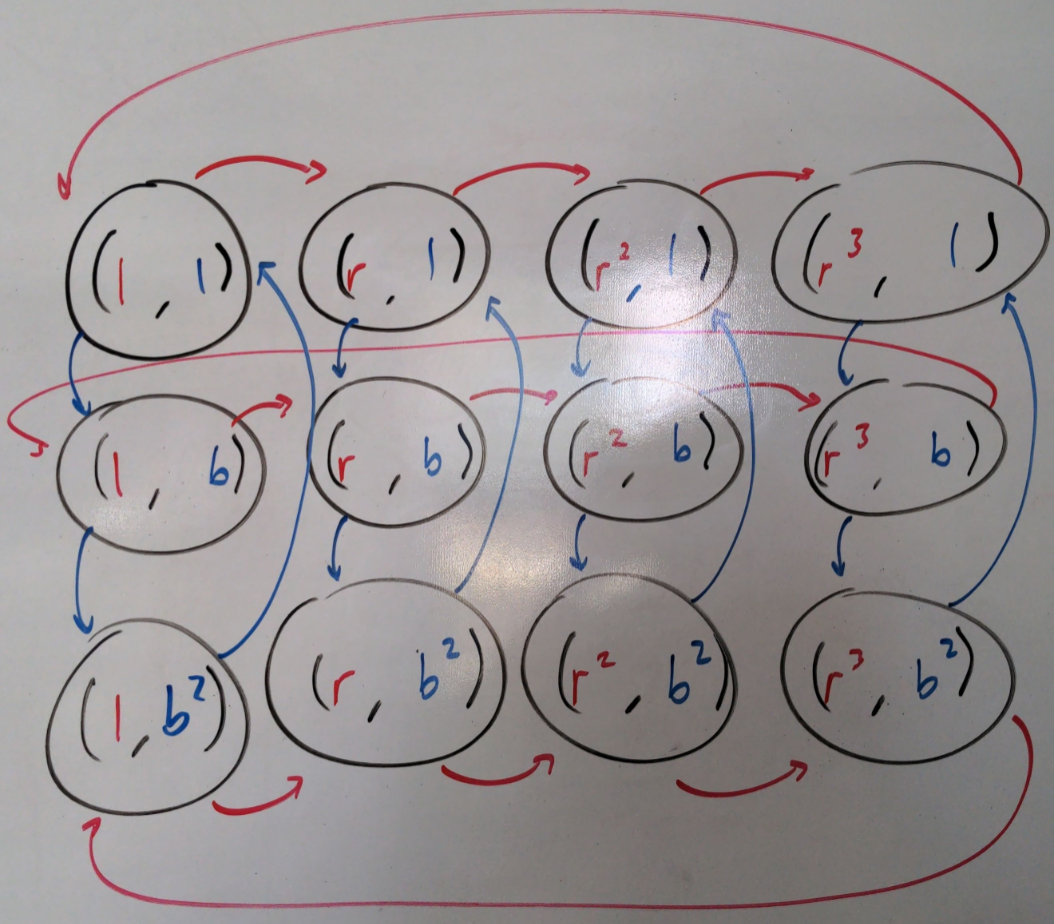 (1, 1) (r, 1) (r², 1) (r³, 1)
(1, b) (r, b) (r², b) (r³, b)
(1, b²) (r, b²) (r², b²) (r³, b²)